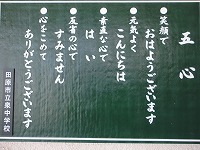 五心
●笑顔で
おはようございます
●元気よく
こんにちは
●素直な心で
はい
●反省の心で
すみません
●心をこめて
ありがとうございます
田原市立泉中学校